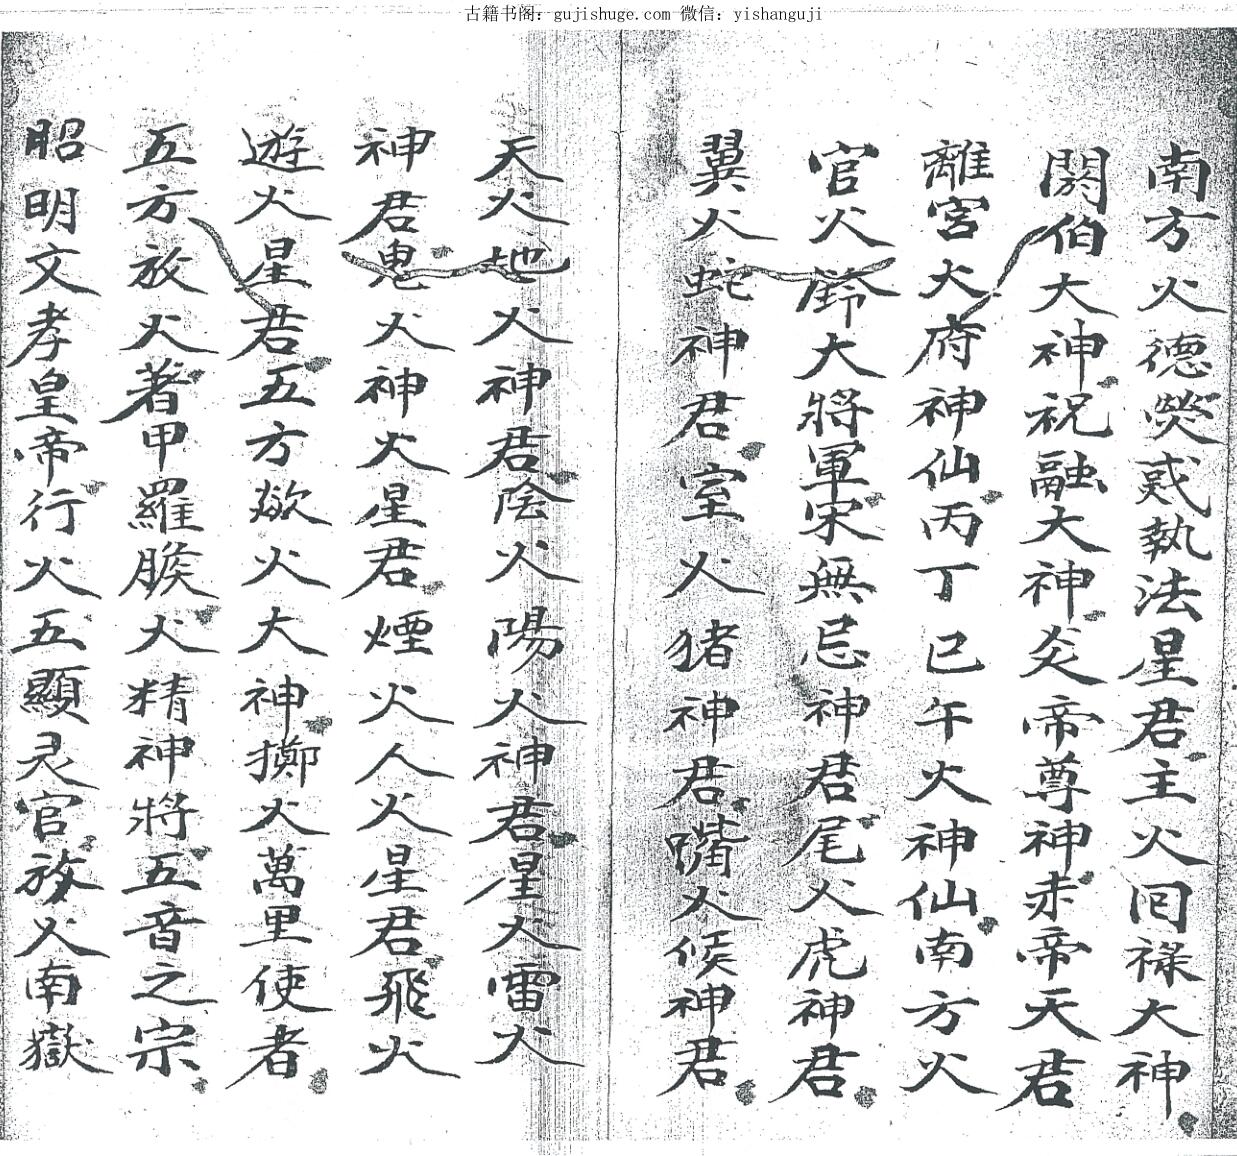 古籍书阁：gujishuge.com 微信：yishanguji
南方火德熒惑執法星君主火囘祿大神
閼伯大神祝融大神炎帝尊神赤帝天君
離宮大府神仙丙丁巳午火神仙南方火
官火鈴大將軍宋無忌神君尾火虎神君
翼火蛇神君室火猪神君嘴火候神君
天火地火神君陰火陽火神君星火雷火
神君鬼火神火星君煙火人火星君飛火
遊火星君五方歘火大神擲火萬里使者
五方放火著甲羅睺火精神將五音之宗
昭明文孝皇帝行火五顯灵官放火南嶽